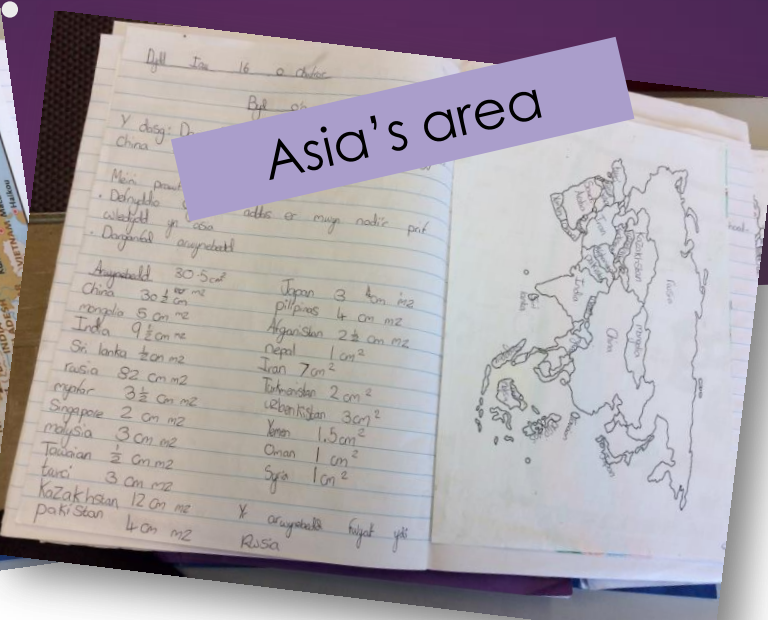 Asia's area
Dydd Iau 16 o
Y dasg:
china
Meini
Defnyddio addas er mwyn nodi'r prif
wledydd yn asia
Darganfod arwynebedd
Arwynebedd 30.5cm²
China 30 ½ cm m2
mongolia 5 cm m2
India 9 ½ cm m2
Sri lanka ½ cm m2
rusia 82 cm m2
3 ½ cm m2
Singapore 2 cm m2
malysia 3 cm m2
Taiwaan ½ cm m2
3 cm m2
Kazakhstan 12 cm m2
pakistan 4 cm m2
Japan 3 cm m2
pilipinas 4 cm m2
Afganistan 2 ½ cm m2
Nepal 1 cm²
Iran 7cm²
Turkmenistan 2 cm²
uzbenkistan 3cm²
Yemen 1.5cm²
Oman 1 cm²
Syria 1cm²
Y arwynebedd fwyaf ydi
Rusia
Rusia
Kazakhstan
mongolia
China
India
Iran
lanka
VIETNAM
Haikou